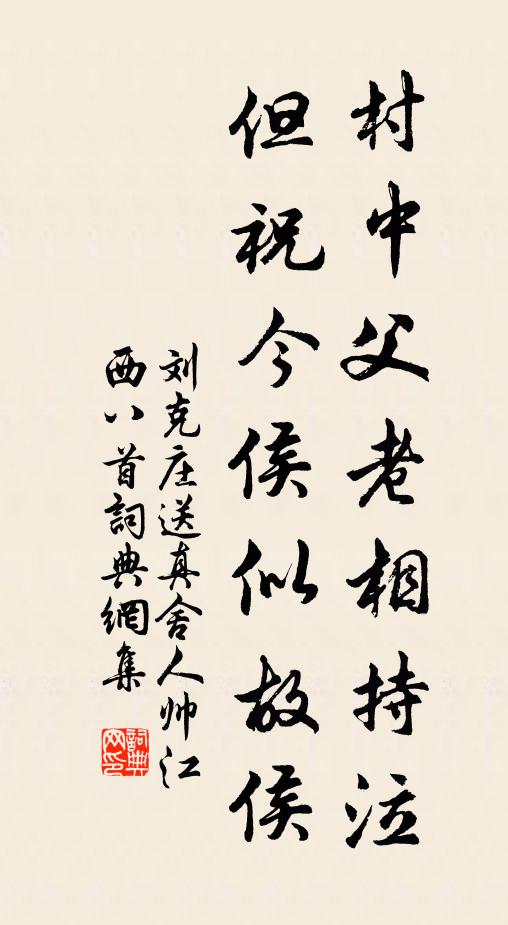 村中父老相持泣
但祝今侯似故侯
刘克庄送真舍人帅江
西八首詞典網集
詞典网印